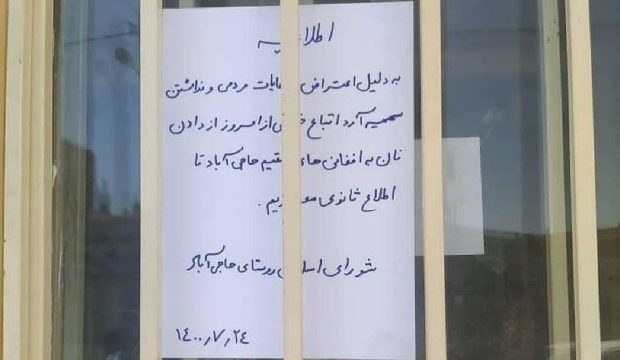 اطلاعیه
به دلیل اعتراض شکایات مردمی و نداشتن
سهمیه آرد اتباع خارجی از امروز از دادن
نان به افغانی های مقیم حاجی آباد تا
اطلاع ثانوی معذوریم.
شورای اسلامی روستای حاجی آباد
۱۴۰۰٫۷٫۲۴